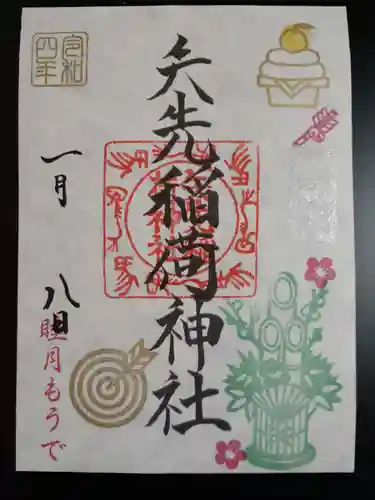 令和
四年
矢先稲荷神社
一月 八日
睦月もうで